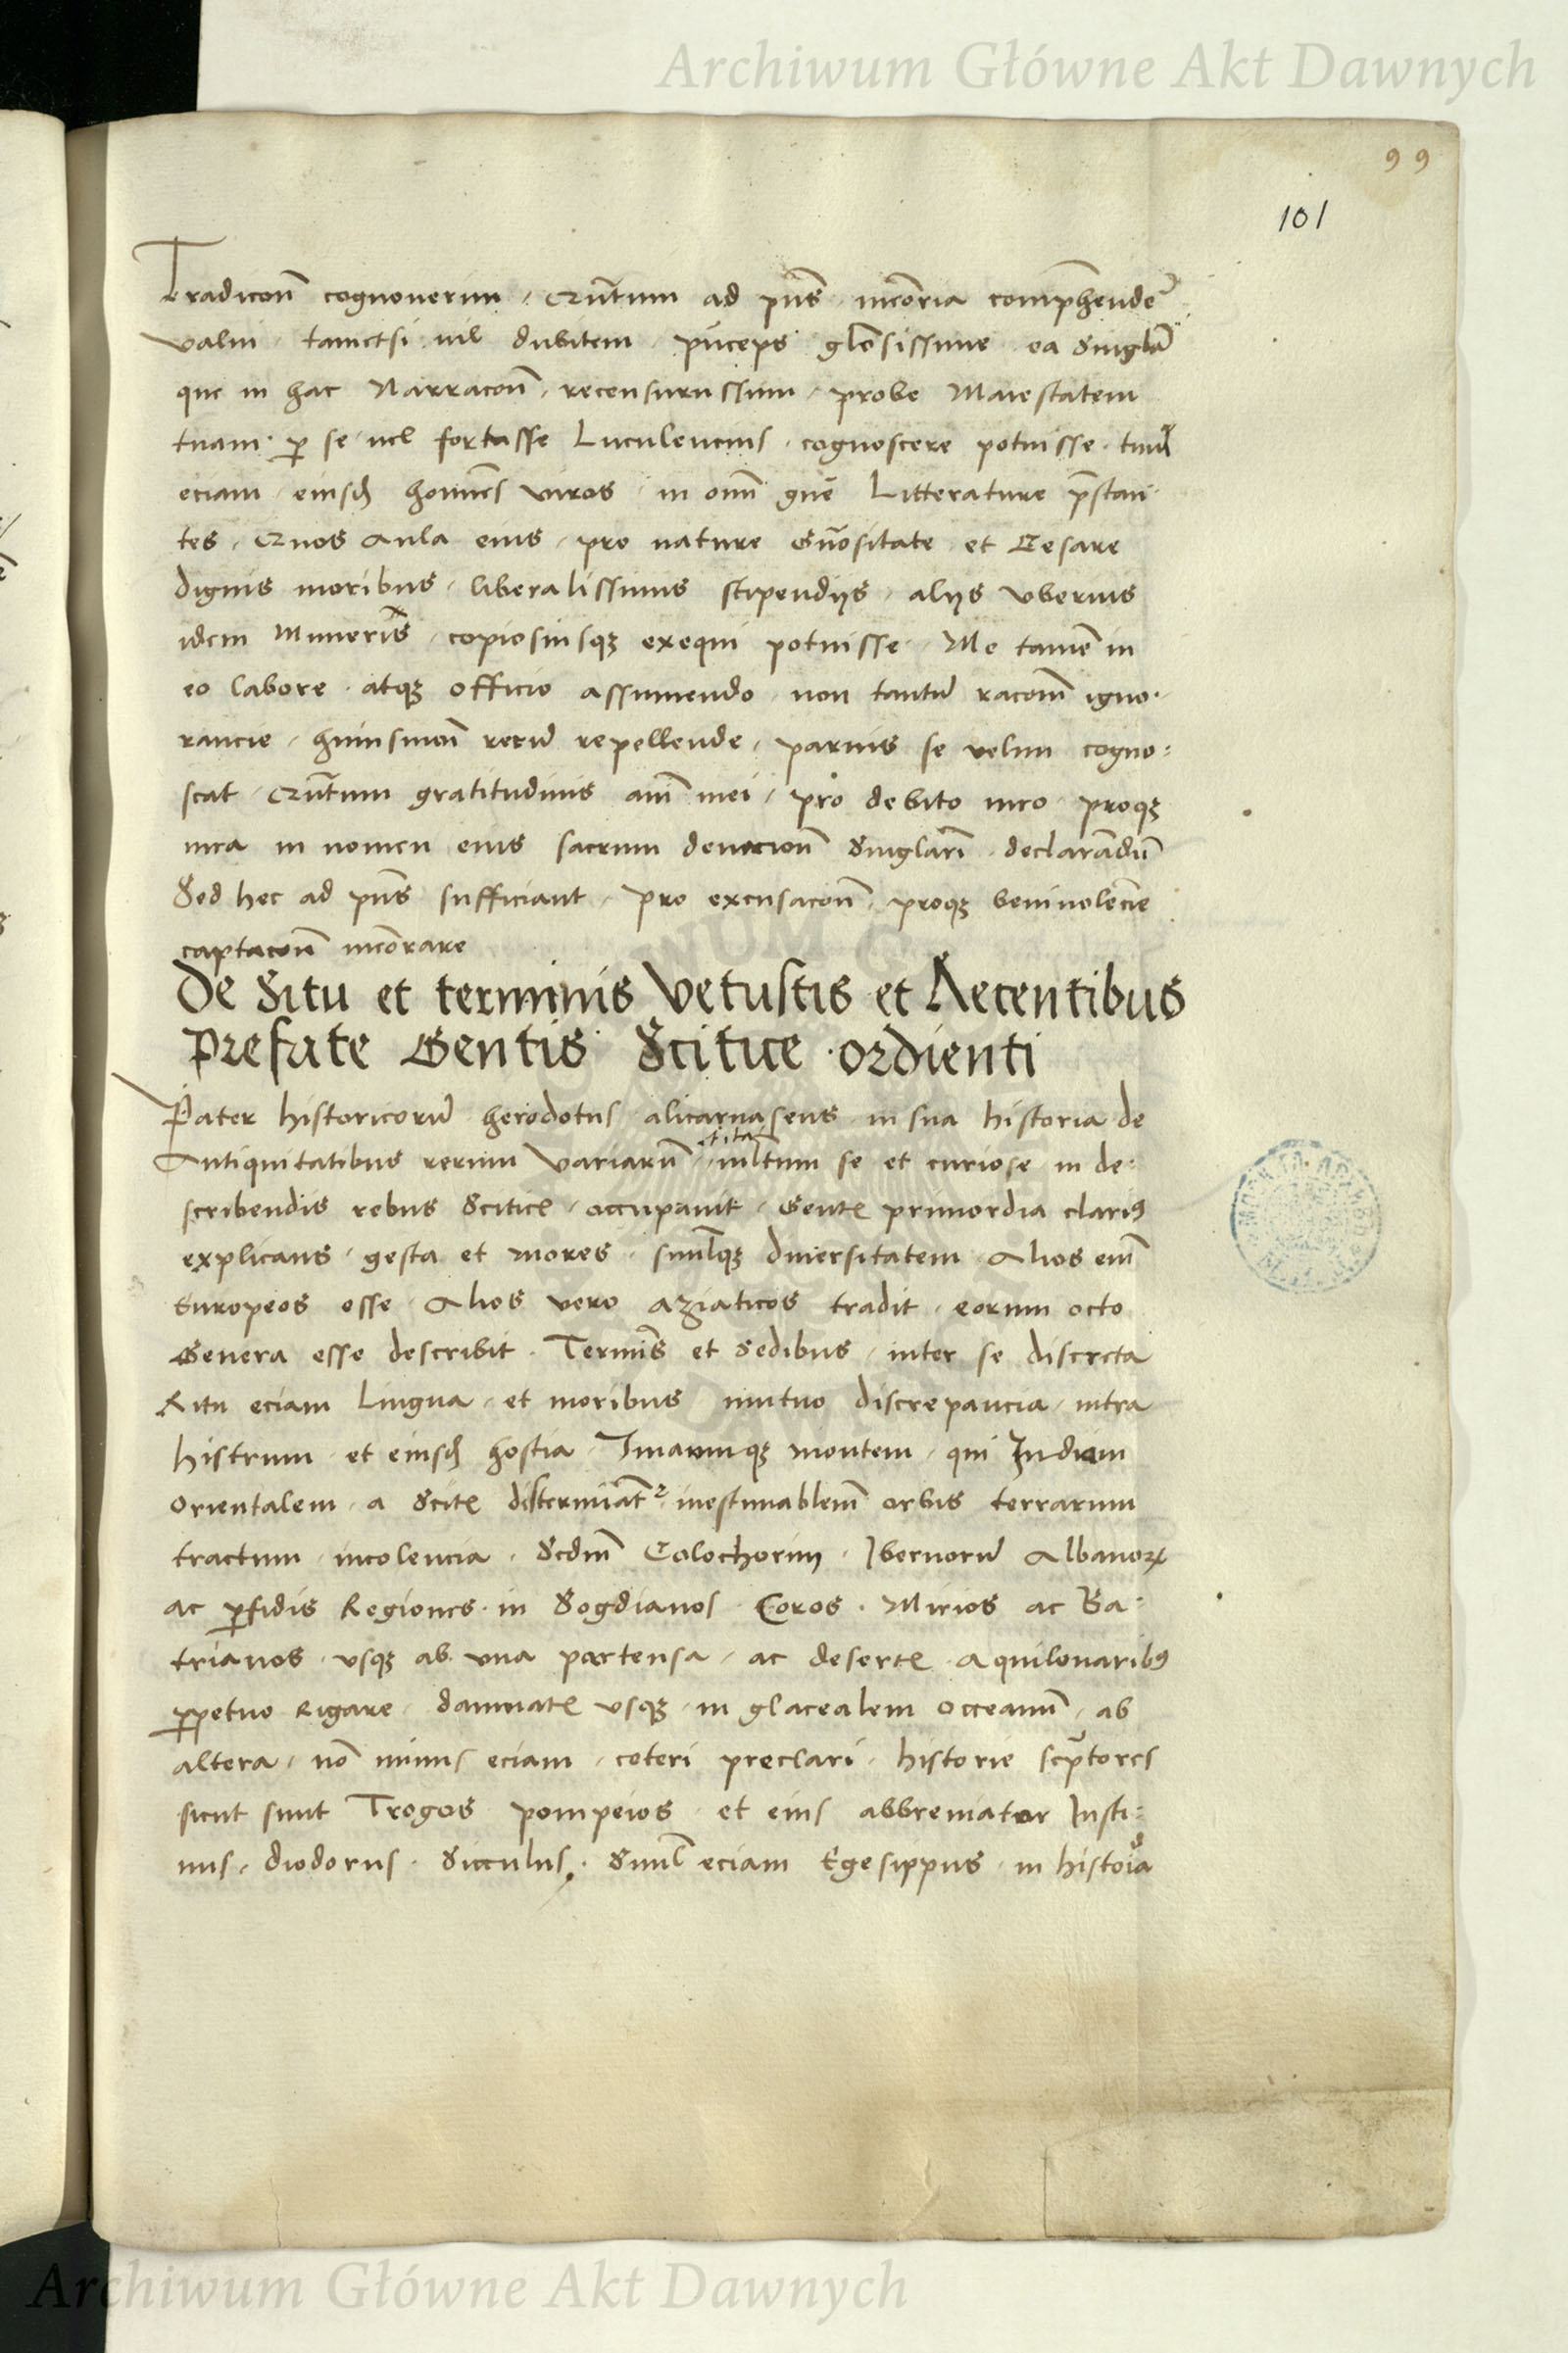 Archiwum Główne Akt Dawnych
99
101
Tradicōn cognoverim, ad pn̄s comp̄hende
valui tametsi nil dubitem, pn̄ceps glōsissime ea singlā
que in hac Narracōn, recensurussum, probe Maiestatem
tuam p̱ se vel fortasse Luculencius cognoscere potuisse
eciam homines viros in om̄i gn̄e Litterature p̄stan
tes, quos Aula eius, pro nature gn̄ositate et Cesare
dignis moribus, liberalissimis stipendijs, alijs uberius
idem Muneris, copiosiusqꝫ exequi potuisse. Me tamē in
eo labore atqꝫ officio assumendo, non tantū racōm igno
rancie, huiusmōi rerū repellende, parvus se velim cogno:
scat gratitudinis aīī mei, pro debito meo proqꝫ
mea in nomen eius sacrum devocionē singlarī declarandū
Sed hec ad pn̄s sufficiant, pro excusacōn, proqꝫ benivolēcie
captacōn
De Situ et terminis Vetustis et Recentibus
Prefate Gentis Scitice ordienti
Pater historicorū herodotus alicarnaseus in sua historia de
Antiquitatibus rerum Variarū multum se et curiose in de:
scribendis rebus Scitice, occupavit, primordia clarius
explicans, gesta et mores, simulqꝫ diversitatem Alios enī
Europeos esse Alios vero aziaticos tradit, eorum octo
Genera esse describit. Terminis et Sedibus, inter se discreta
Ritu eciam Lingua, et moribus mutuo discrepancia, intra
histrum et hostia, Imaumqꝫ montem, qui Indiam
orientalem, a inestimablem orbis terrarum
tractum, incolencia, Colochorim, Ibernorū Albanoꝝ
ac p̱fidis Regiones in Sogdianos Coros. Mirios ac Ba:
trianos usqꝫ ab una partensa, ac Aquilonaribꝰ
p̱petuo Rigare, usqꝫ in glacealem occeanū, ab
altera, nō minus eciam, ceteri preclari, historie scp̄tores
sicut sunt Trogos pompeios et eius abbreviator Iusti:
nus, diodorus. Sicculus. Simul eciam Egesippus in
Archiwum Główne Akt Dawnych